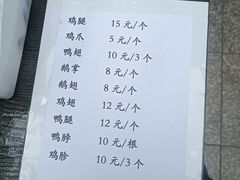 鸡腿 15元/个
鸡爪 5元/个
鸭翅 10元/3个
鹅掌 8元/个
鹅翅 8元/个
鸡翅 12元/个
鸭腿 12元/个
鸭脖 10元/根
鸡胗 10元/3个